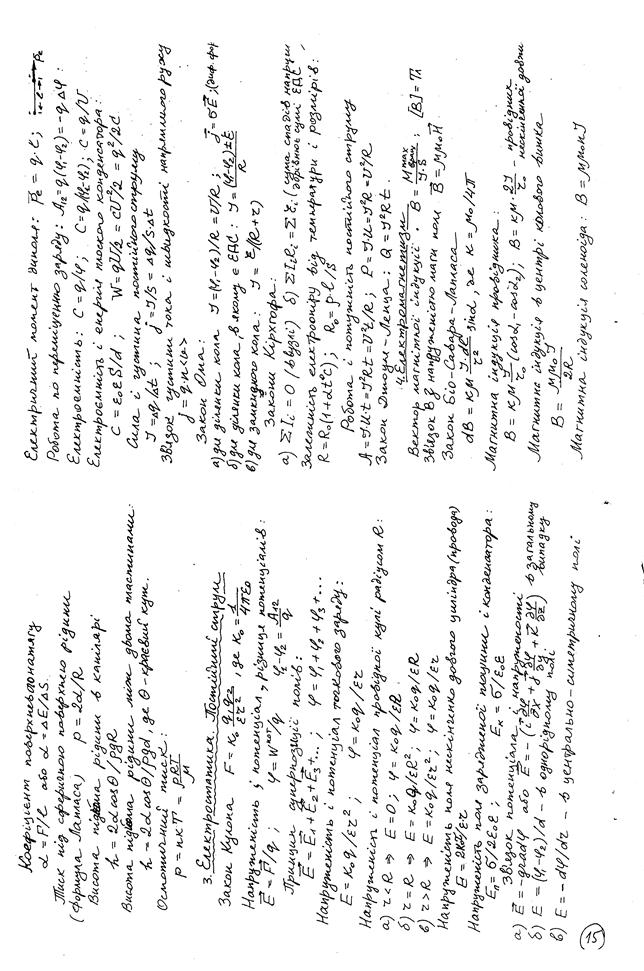 Коефіцієнт поверхнев. натягу
α = F/ℓ або α = ΔE/ΔS.
Тиск під сферичною поверхнею рідини
(формула Лапласа) p = 2α/R
Висота підйома рідини в капілярі
h = 2αcosθ/ρgR
Висота підйома рідини між двома пластинами:
h = 2αcosθ/ρgd, де θ - краєвий кут.
Осмотичний тиск:
p = nкT = ρRT/μ
3. Електростатика. Постійний струм
Закон Кулона F = K₀ q₁q₂/εr², де K₀ = 1/4πε₀
Напруженість і потенціал, різниця потенціалів:
E⃗ = F⃗/q; φ = Wпот/q φ₁-φ₂ = A₁₂/q
Принцип суперпозиції полів:
E⃗ = E⃗₁ + E⃗₂ + E⃗₃ + ...; φ = φ₁ + φ₂ + φ₃ + ...
Напруженість і потенціал точкового заряду:
E = K₀q/εr²; φ = K₀q/εr
Напруженість і потенціал провідної кулі радіусом R:
а) r < R ⇒ E = 0; φ = K₀q/εR
б) r = R ⇒ E = K₀q/εR²; φ = K₀q/εR
в) r > R ⇒ E = K₀q/εr²; φ = K₀q/εr
Напруженість поля нескінченно довгого циліндра (провода)
E = 2Kτ/εr
Напруженість поля зарядженої площини і конденсатора:
Eп = σ/2ε₀ε; Eк = σ/ε₀ε
Звязок потенціала і напруженості
а) E⃗ = -gradφ або E⃗ = -(i⃗ ∂φ/∂x + j⃗ ∂φ/∂y + k⃗ ∂φ/∂z) в загальному випадку
б) E = (φ₁-φ₂)/d - в однорідному полі
в) E = -dφ/dr - в центрально-симетричному полі
15
Електричний момент диполя: P⃗е = q·ℓ⃗; P⃗е
Робота по переміщенню заряду: A₁₂ = q(φ₁-φ₂) = -qΔφ;
Електроємність: C = q/φ; C = q/(φ₁-φ₂); C = q/U
Електроємність і енергія плоского конденсатора:
C = ε₀εS/d; W = qU/2 = CU²/2 = q²/2C
Сила і густина постійного струму
J = Δq/Δt; j = J/S = Δq/SΔt
Звязок густини тока і швидкості напрямного руху
j = q·n<u>
Закон Ома:
а) для ділянки кола J = (φ₁-φ₂)/R = U/R; j⃗ = σE⃗;
б) для ділянки кола, в якому є ЕДС: J = (φ₁-φ₂)±ℰ/R
в) для замкненого кола: J = ℰ/(R+r)
Закони Кірхгофа:
а) ΣIᵢ = 0 (в вузлі) б) ΣIᵢRᵢ = Σℰᵢ (сума спадів напруги дорівнює сумі ЕДС
Залежність електроопіру від температури і розмірів:
R = R₀(1+αt°C); R₀ = ρℓ/S
Робота і потужність постійного струму
A = JUt = J²Rt = U²t/R; P = JU = J²R = U²/R
Закон Джоуля-Ленца: Q = J²Rt.
4. Електромагнетизм
Вектор магнітної індукції. B = Mmax/J·S; [B] = Тл
Звязок B з напруженістю магн. поля B⃗ = μμ₀H⃗
Закон Біо-Савара-Лапласа
dB = Kμ J·dℓ/r² sinα, де K = μ₀/4π
Магнітна індукція провідника:
B = Kμ J/r₀ (cosα₁-cosα₂); B = Kμ·2J/r₀ - провідник нескінченної довжи
Магнітна індукція в центрі колового витка
B = μμ₀J/2R
Магнітна індукція соленоїда: B = μμ₀nJ